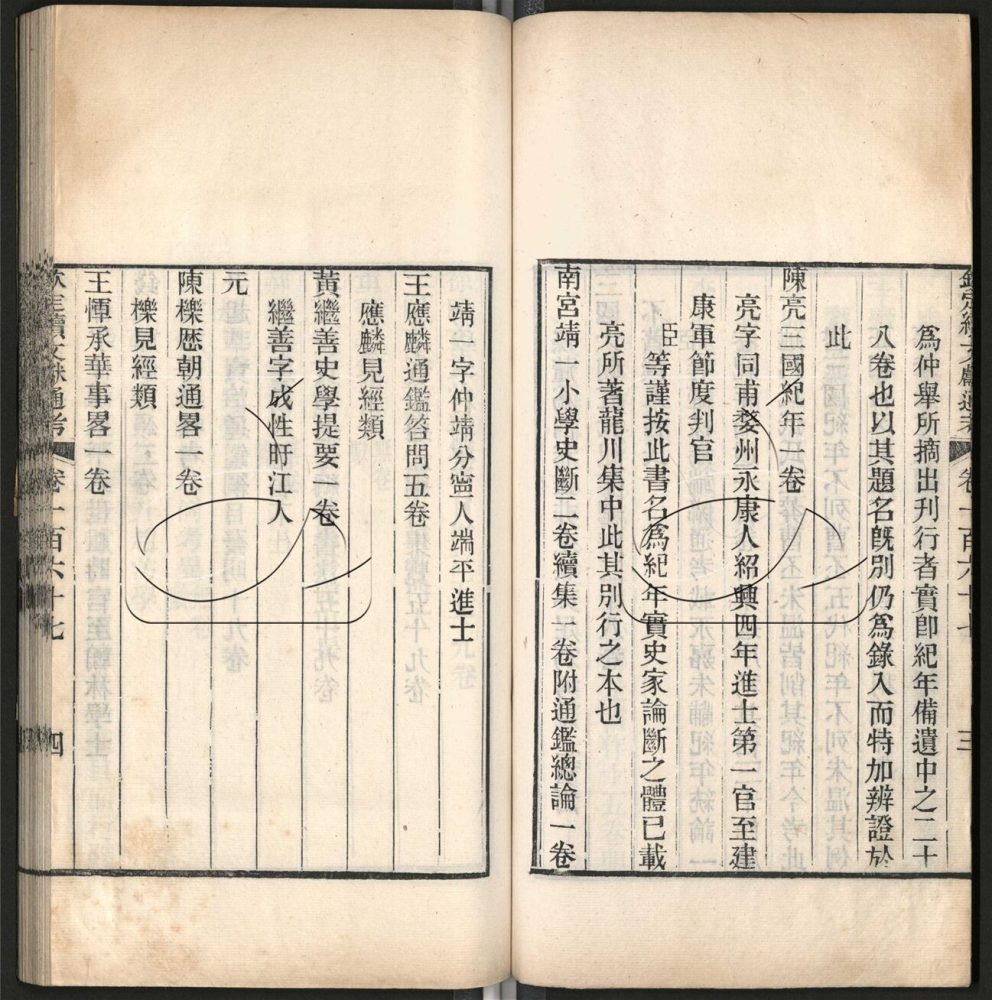 爲仲舉所摘出刋行者實卽紀年備遺中之二十
八卷也以其題名旣別仍爲錄入而特加辨證於
此
陳亮三國紀年一卷
亮字同甫婺州永康人紹興四年進士第一官至建
康軍節度判官
臣等謹按此書名爲紀年實史家論斷之體已載
亮所著龍川集中此其別行之本也
南宮靖一小學史斷二卷續集一卷附通鑑總論一卷
靖一字仲靖分寧人端平進士
王應麟通鑑答問五卷
應麟見經類
黃繼善史學提要一卷
繼善字成性盱江人
元
陳櫟歷朝通畧一卷
櫟見經類
王惲承華事畧一卷
欽定續文獻通考 卷一百六十七 四